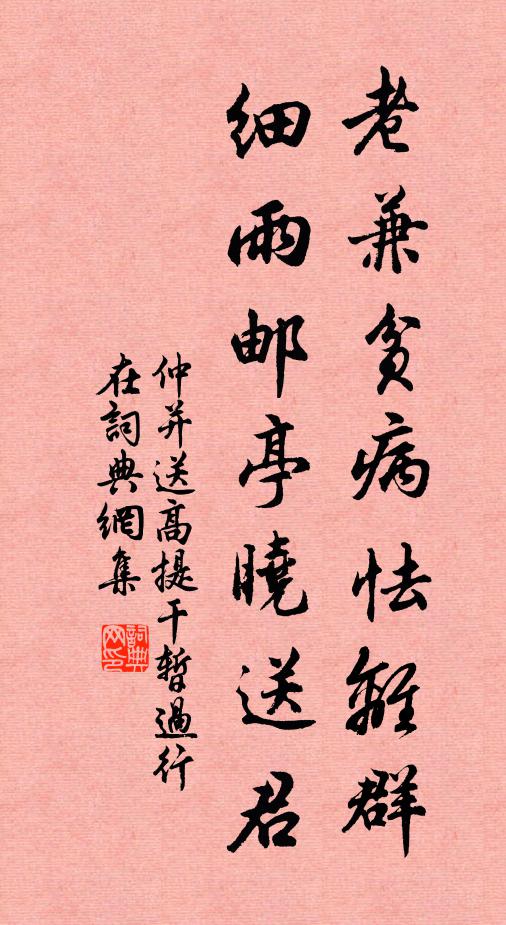 老兼貧病怯離群
細雨邮亭曉送君
仲并送高提干暫過行
在詞典網集
詞典网印